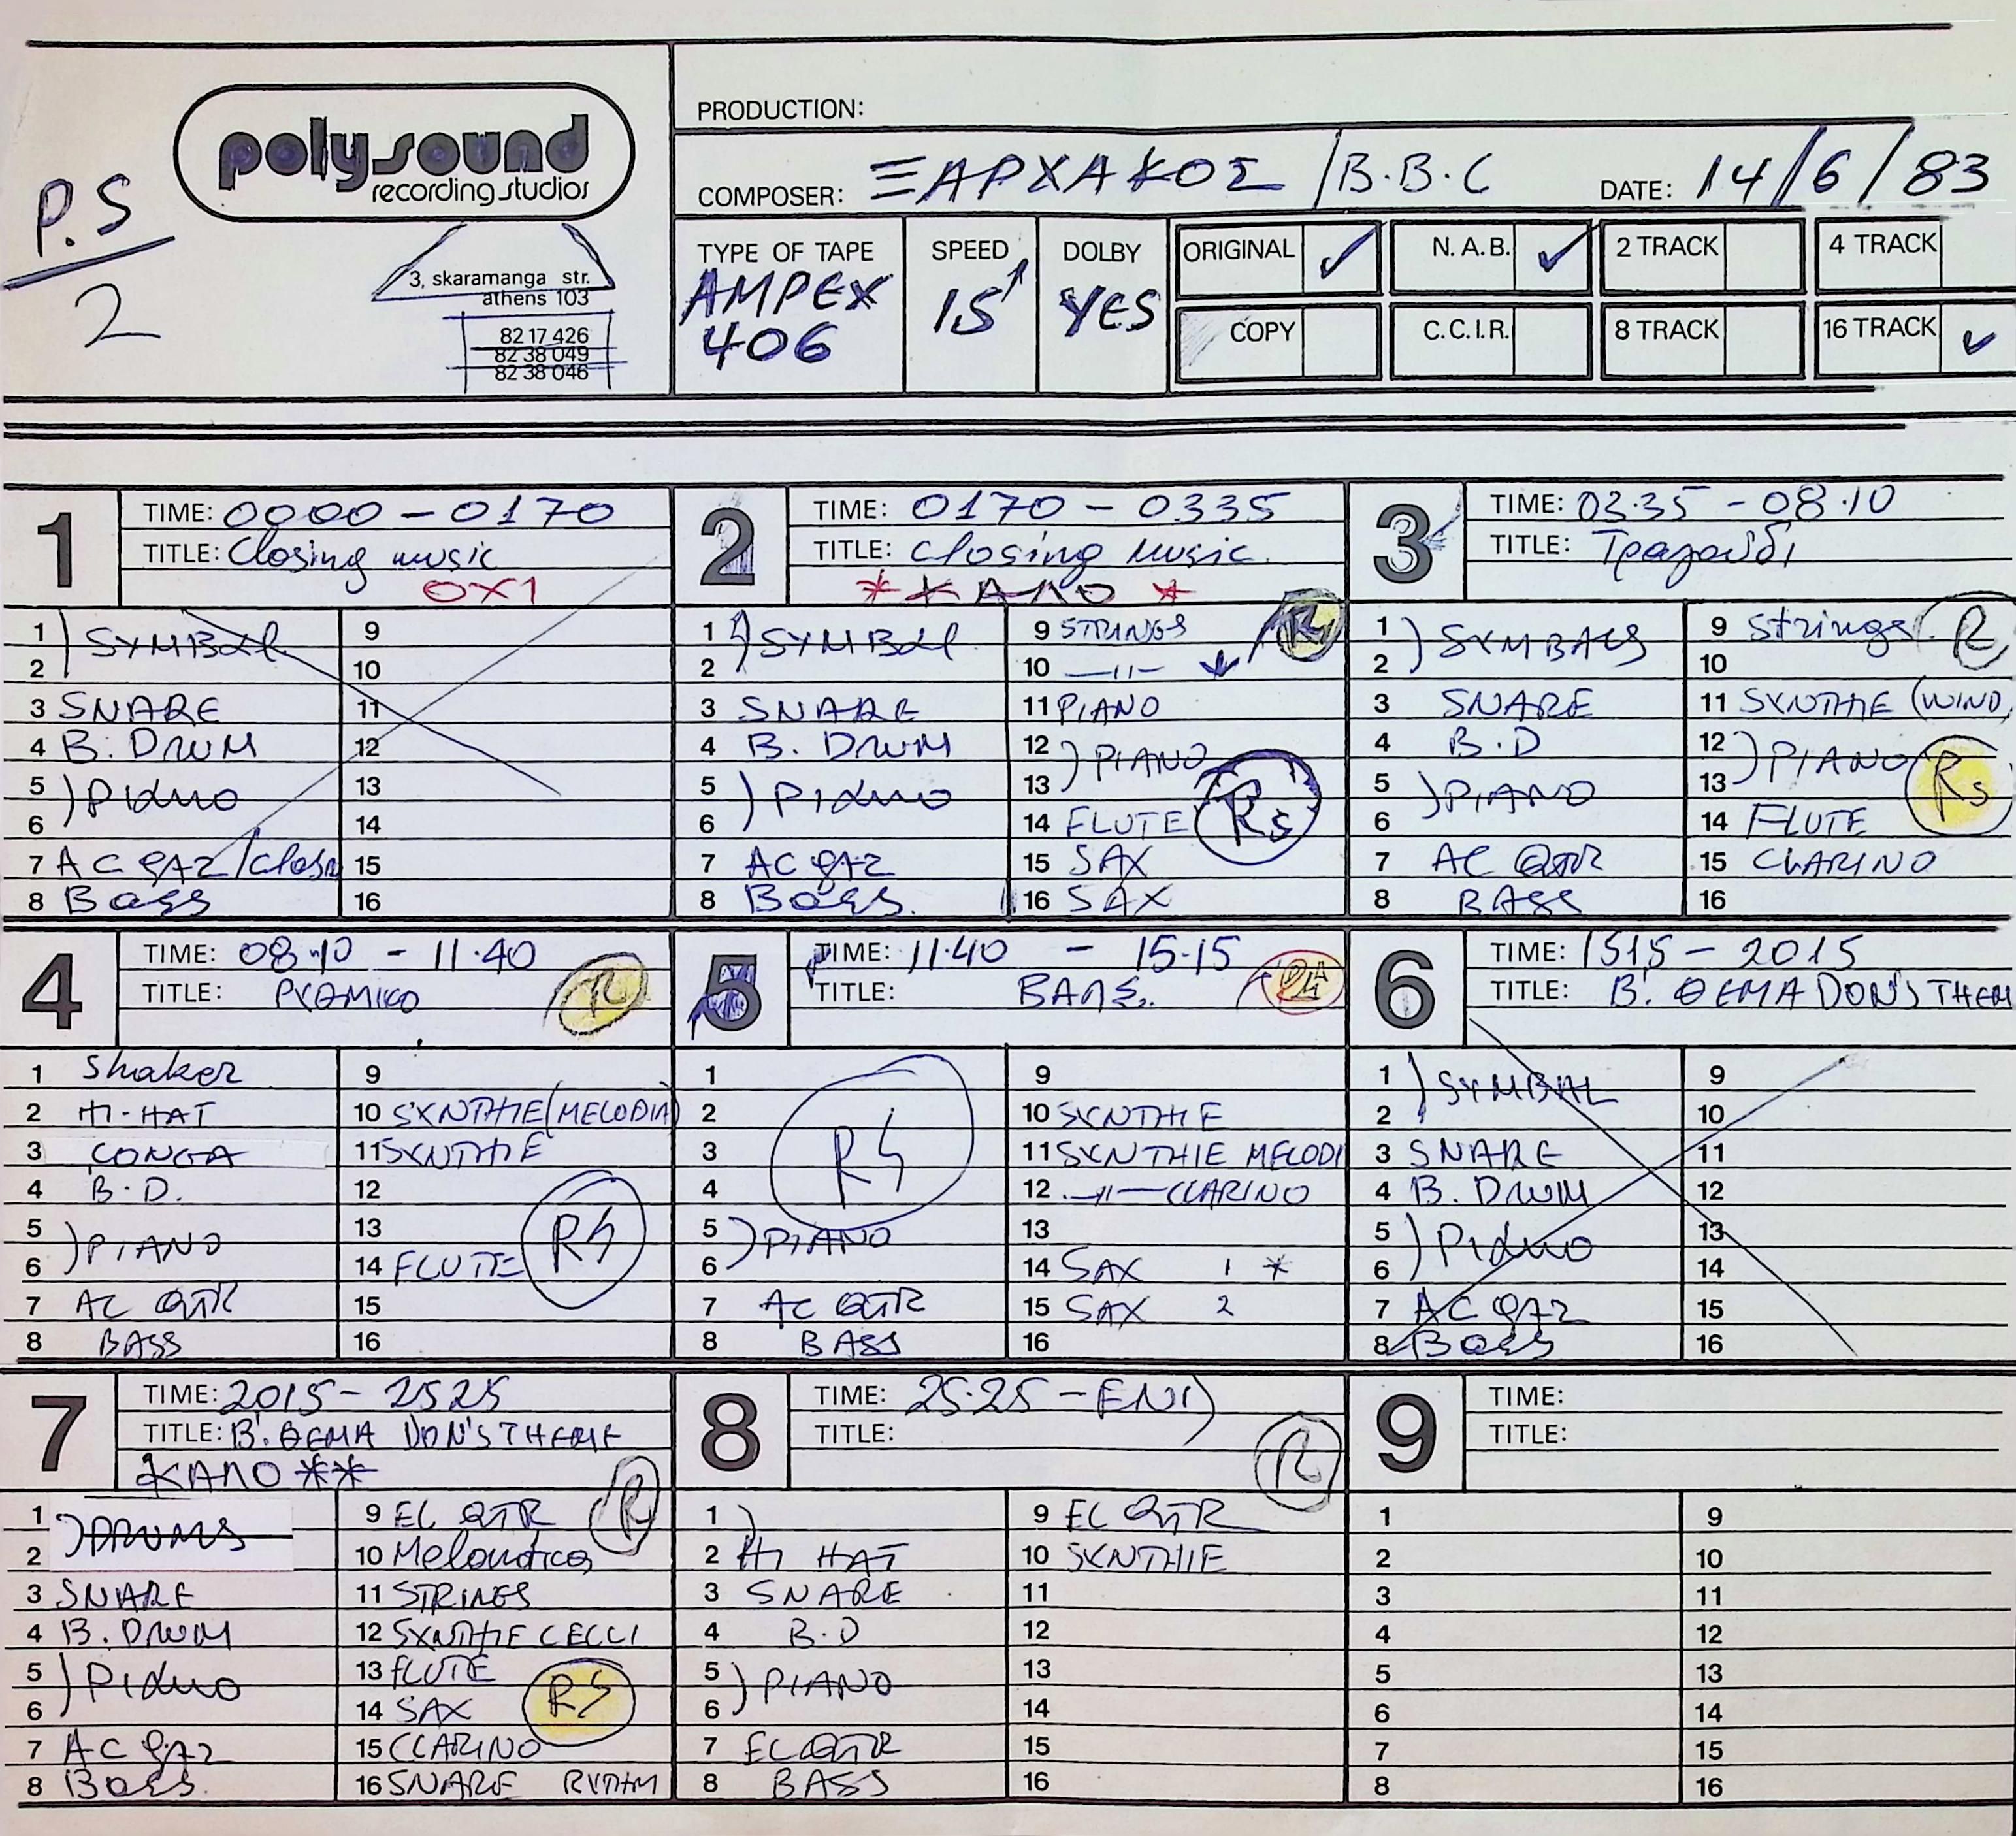 P.S
2
polysound
recording studios
3, skaramanga str.
athens 103
82 17 426
82 38 049
82 38 046
PRODUCTION:
COMPOSER: ΞΑΡΧΑΚΟΣ / B.B.C DATE: 14/6/83
TYPE OF TAPE AMPEX 406
SPEED 15
DOLBY YES
ORIGINAL ✓ N.A.B. ✓ 2 TRACK 4 TRACK
COPY C.C.I.R. 8 TRACK 16 TRACK ✓
1
TIME: 0000 - 0170
TITLE: Closing music
OXI
1 2 ) SYMBAL
3 SNARE
4 B. DRUM
5 6 ) Piano
7 AC gtz /
8 Bass
9
10
11
12
13
14
15
16
2
TIME: 0170 - 0335
TITLE: Closing Music
* KANO *
1 2 ) SYMBAL
3 SNARE
4 B. DRUM
5 6 ) Piano
7 AC gtz
8 Bass.
9 STRINGS
10 —11—
11 PIANO
12 13 ) PIANO
14 FLUTE
15 SAX
16 SAX
R
Rs
3
TIME: 03.35 - 08.10
TITLE: Τραγούδι
1 2 ) SYMBALS
3 SNARE
4 B.D
5 6 ) PIANO
7 AC GTR
8 BASS
9 Strings.
10
11 SYNTHIE (WIND)
12 13 ) PIANO
14 FLUTE
15 CLARINO
16
R
Rs
4
TIME: 08.10 - 11.40
TITLE:
R
1 Shaker
2 HI-HAT
3 CONGA
4 B.D.
5 6 ) PIANO
7 AC GTR
8 BASS
9
10 SYNTHIE (MELODIA)
11 SYNTHIE
12
13
14 FLUTE
15
16
RS
5
TIME: 11.40 - 15.15
TITLE: ΒΑΛΣ.
1
2
3
4
5 6 ) PIANO
7 AC GTR
8 BASS
RS
9
10 SYNTHIE
11 SYNTHIE MELODI
12 —11— CLARINO
13
14 SAX 1 *
15 SAX 2
16
6
TIME: 1515 - 2015
TITLE: Β'. ΘΕΜΑ DON'S THEM
1 2 ) SYMBAL
3 SNARE
4 B. DRUM
5 6 ) Piano
7 AC gtz
8 Bass
9
10
11
12
13
14
15
16
7
TIME: 2015 - 2525
TITLE: Β'. ΘΕΜΑ DON'S THEME
KANO **
1 2 ) DRUMS
3 SNARE
4 B. DRUM
5 6 ) Piano
7 AC gtz
8 Bass.
9 EL GTR
10 Melondica
11 STRINGS
12 SYNTHIE CELLI
13 FLUTE
14 SAX
15 CLARINO
16 SNARE RYTHM
R
RS
8
TIME: 25.25 - END
TITLE:
R
1 )
2 HI HAT
3 SNARE
4 B.D
5 6 ) PIANO
7 EL GTR
8 BASS
9 EL GTR
10 SYNTHIE
11
12
13
14
15
16
9
TIME:
TITLE:
1
2
3
4
5
6
7
8
9
10
11
12
13
14
15
16